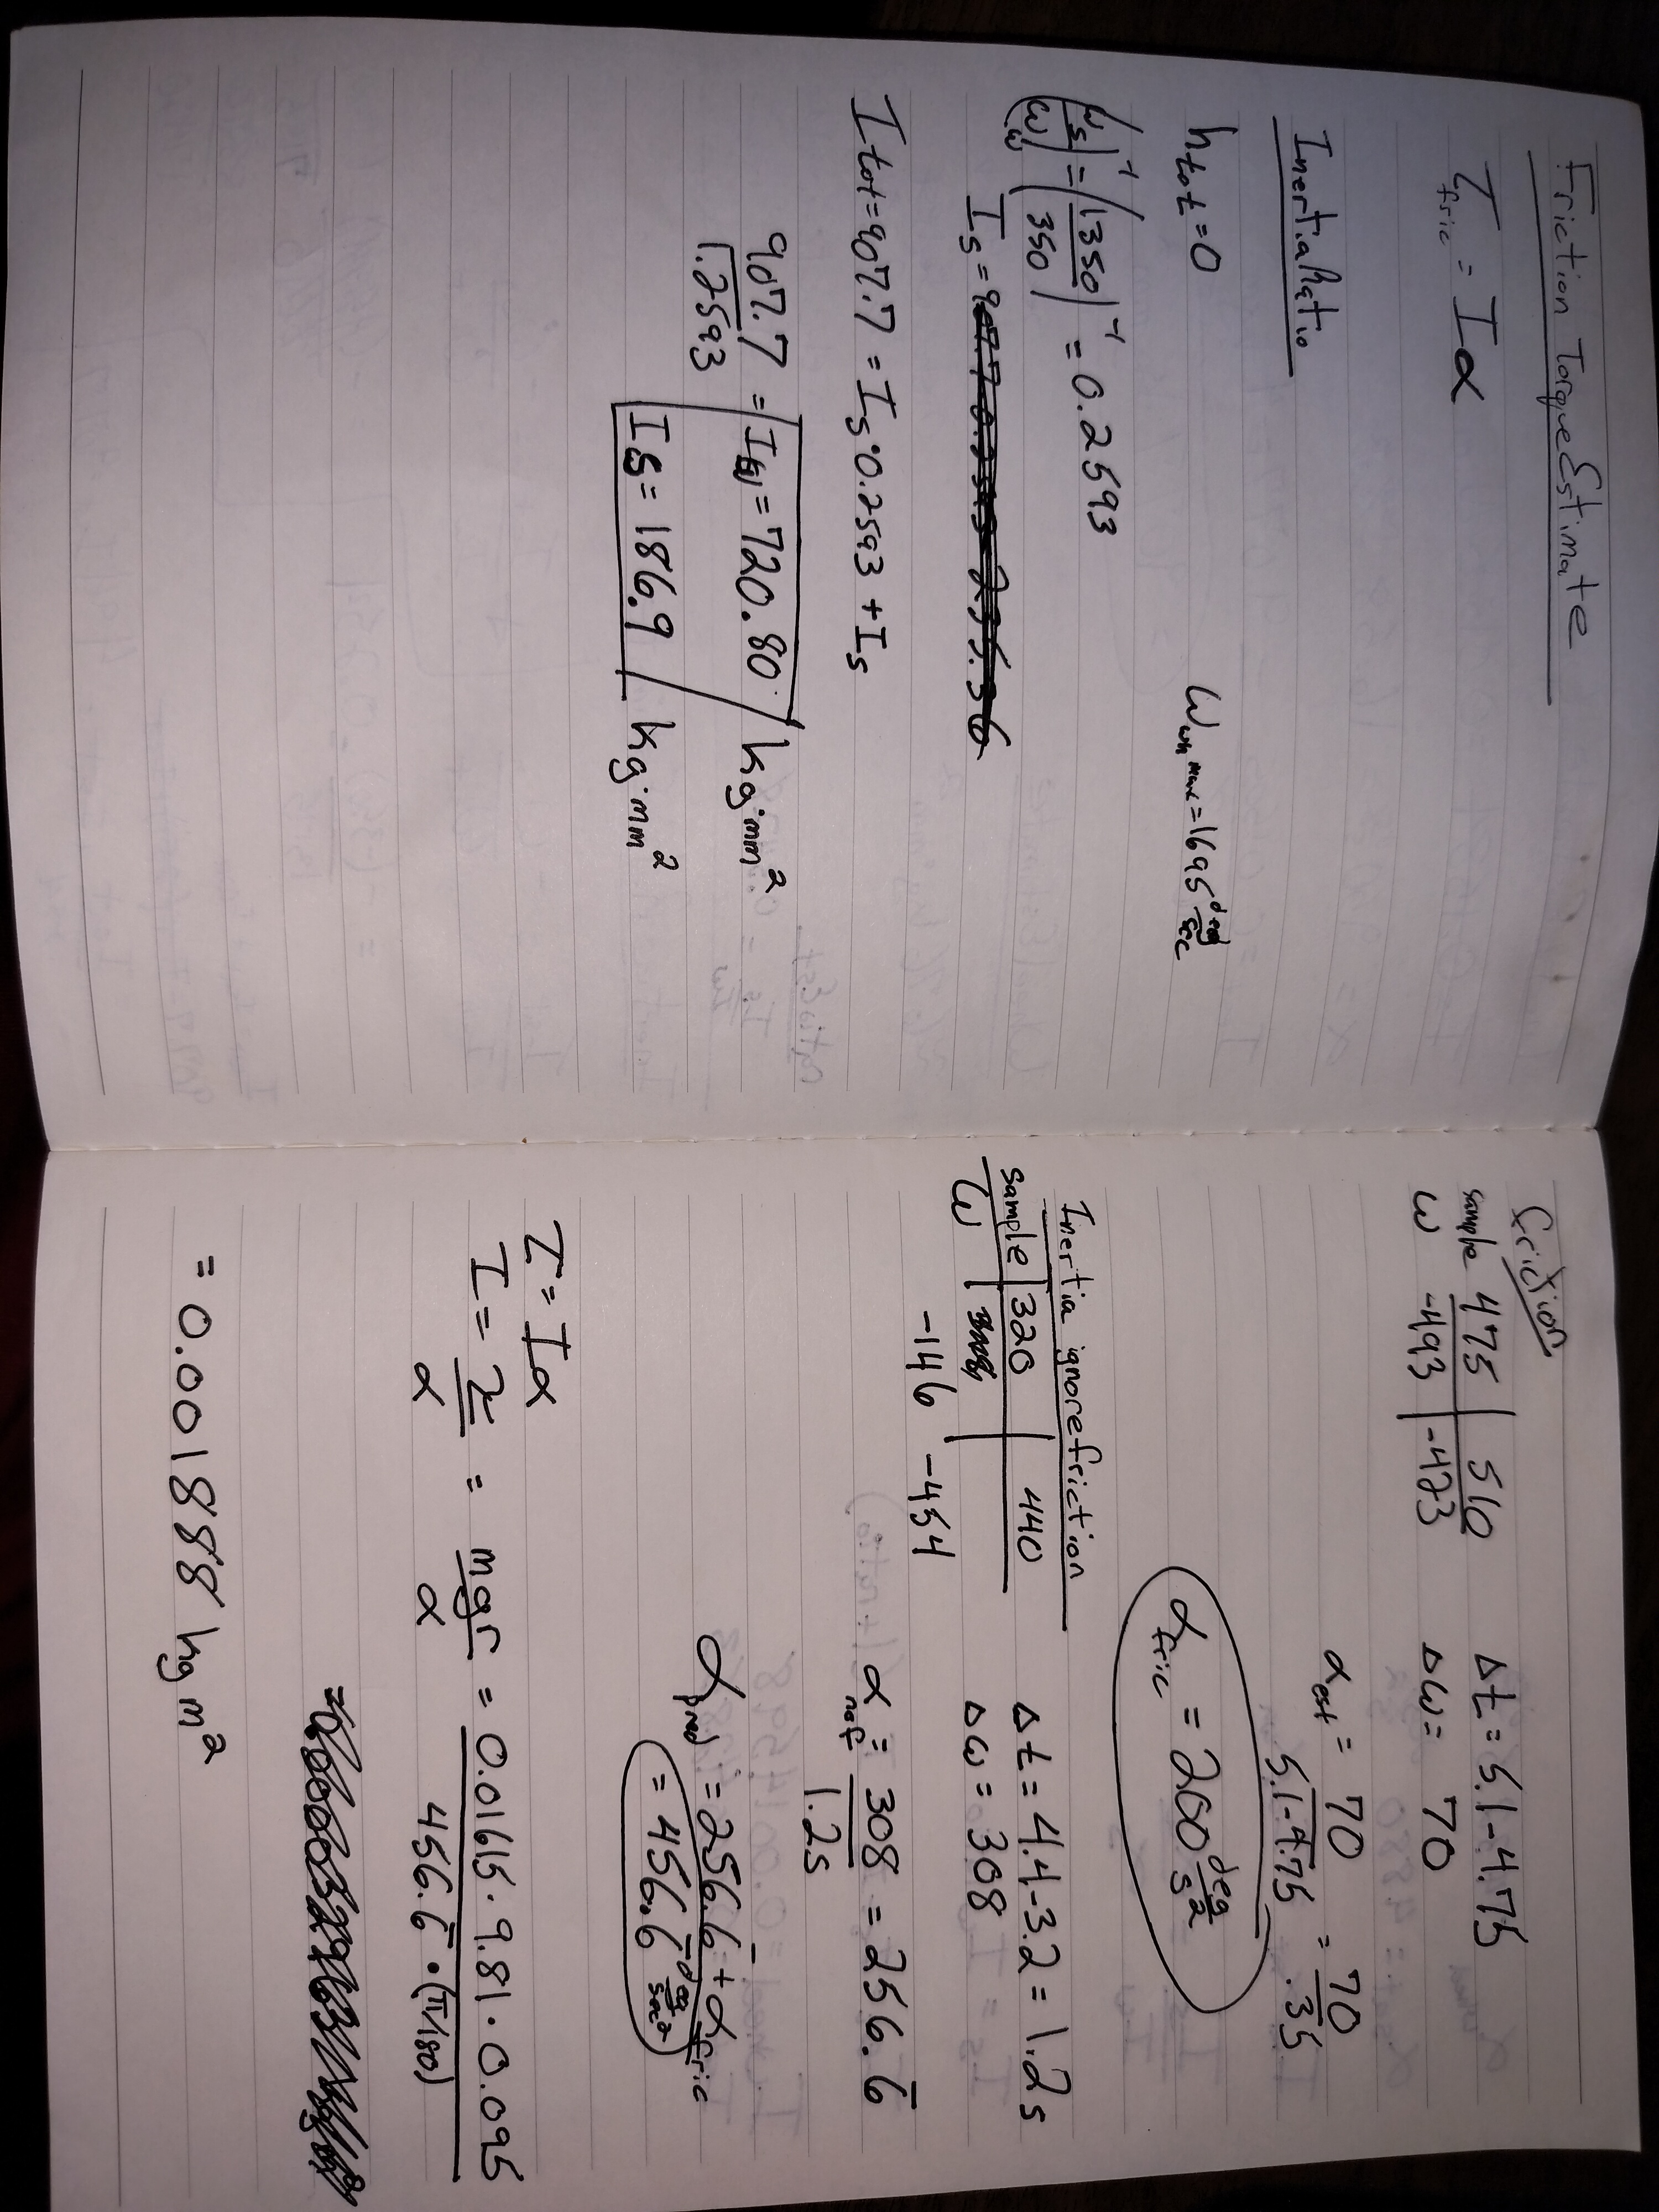 Friction Torque Estimate
τ_fric = Iα
Inertia Ratio
h_tot = 0
ω_wh max = 1695 deg/sec
(ω_s/ω_w)^-1 = (1350/350)^-1 = 0.2593
I_s = 907.7·0.2593 = 235.36
I_tot = 907.7 = I_s·0.2593 + I_s
907.7/1.2593 = I_w = 720.80 kg·mm²
I_s = 186.9 kg·mm²
friction
sample 475 | 510
ω -493 | -423
Δt = 5.1-4.75
Δω = 70
α_est = 70/(5.1-4.75) = 70/.35
α_fric = 200 deg/s²
Inertia ignore friction
sample | 320 | 440
ω
-146 -454
Δt = 4.4-3.2 = 1.2s
Δω = 308
α_net = 308/1.2s = 256.6̅
α = 256.6̅ + α_fric
= 456.6̅ deg/sec²
τ = Iα
I = τ/α = mgr/α = 0.0165·9.81·0.095/456.6̅·(π/180)
= 0.001888 kg m²